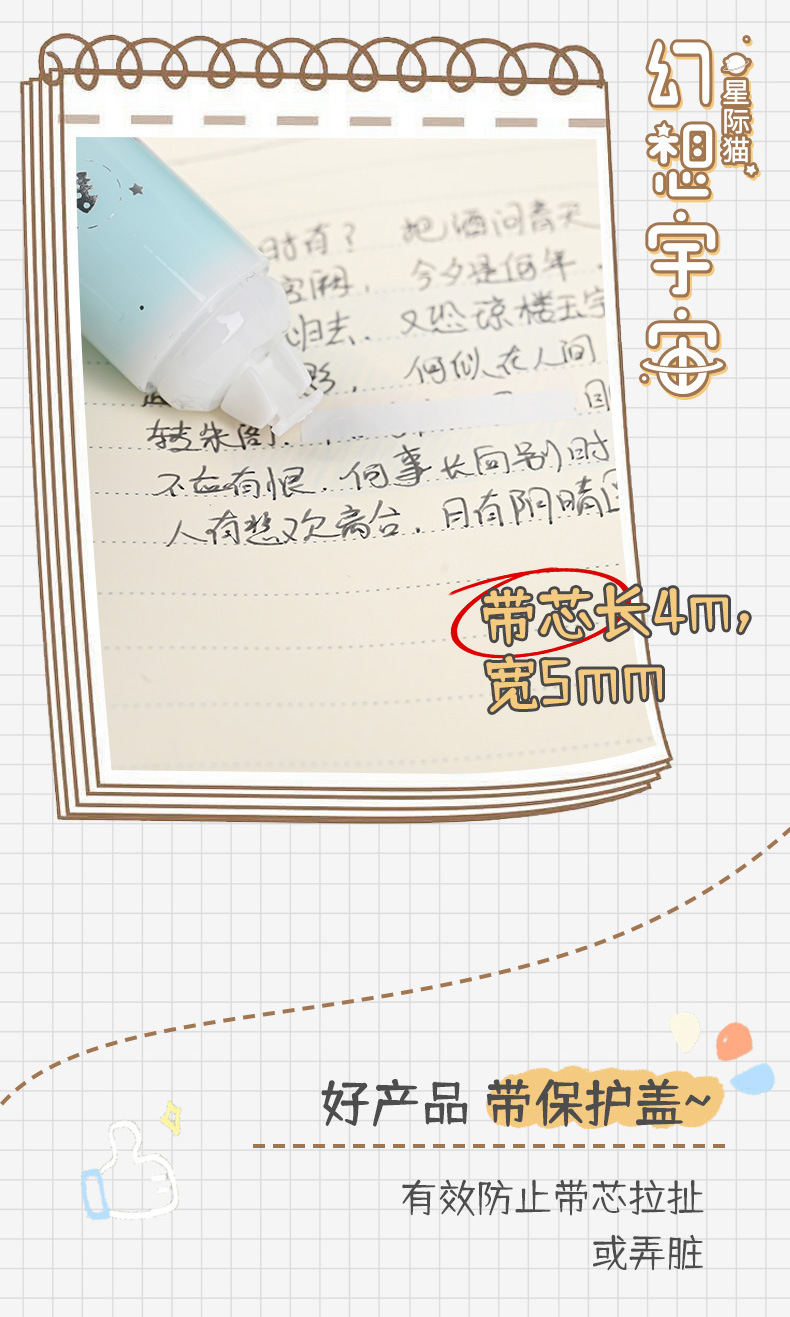 幻想宇宙
星际猫
时有？ 把酒问青天
宫阙， 今夕是何年
归去、又恐琼楼玉宇
影， 何似在人间
转朱阁，
不应有恨．何事长向别时
人有悲欢离合．月有阴晴
带芯长4m，
宽5mm
好产品 带保护盖~
有效防止带芯拉扯
或弄脏